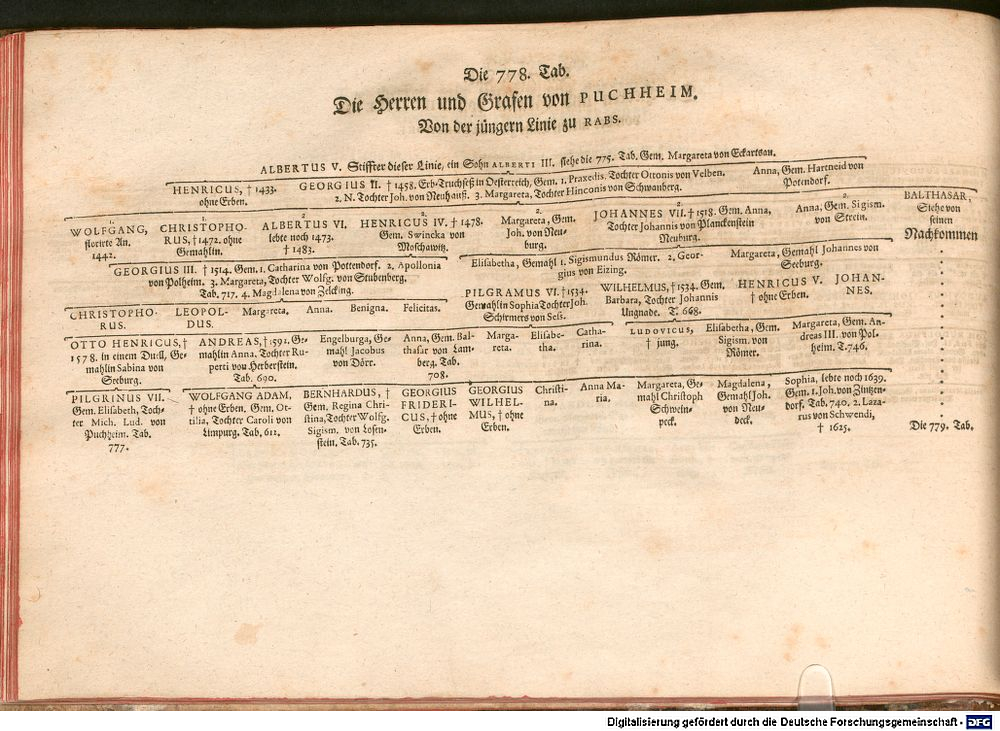 Die 778. Tab.
Die Herren und Grafen von PUCHHEIM.
Von der jüngern Linie zu RABS.
ALBERTUS V. Stiffter dieser Linie, ein Sohn ALBERTI III. siehe die 775. Tab. Gem. Margareta von Eckartsau.
HENRICUS, † 1433.
ohne Erben.
GEORGIUS II. † 1458. Erb-Truchseß in Oesterreich, Gem. 1. Praxedis, Tochter Ottonis von Velben.
2. N. Tochter Joh. von Neuhauß. 3. Margareta, Tochter Hinconis von Schwanberg.
Anna, Gem. Hartneid von
Potendorf.
BALTHASAR,
Siehe von
seinen
Nachkommen
Die 779. Tab.
1.
WOLFGANG,
florirte An.
1442.
1.
CHRISTOPHO-
RUS, † 1472. ohne
Gemahlin.
2.
ALBERTUS VI.
lebte noch 1473.
† 1483.
2.
HENRICUS IV. † 1478.
Gem. Swincka von
Moschawitz.
2.
Margareta, Gem.
Joh. von Neu-
burg.
2.
JOHANNES VII. † 1518. Gem. Anna,
Tochter Johannis von Planckenstein
Neuburg.
2.
Anna, Gem. Sigism.
von Strein.
GEORGIUS III. † 1514. Gem. 1. Catharina von Pottendorf. 2. Apollonia
von Polheim. 3. Margareta, Tochter Wolfg. von Stubenberg.
Tab. 717. 4. Magdalena von Zelcking.
Elisabetha, Gemahl 1. Sigismundus Römer. 2. Geor-
gius von Eizing.
Margareta, Gemahl Johannes von
Seeburg.
PILGRAMUS VI. † 1534.
Gemahlin Sophia Tochter Joh.
Schirmers von Sels.
WILHELMUS, † 1534. Gem.
Barbara, Tochter Johannis
Ungnade. T. 668.
HENRICUS V.
† ohne Erben.
JOHAN-
NES.
CHRISTOPHO-
RUS.
LEOPOL-
DUS.
Margareta.
Anna.
Benigna.
Felicitas.
OTTO HENRICUS, †
1578. in einem Duell, Ge-
mahlin Sabina von
Seeburg.
ANDREAS, † 1592. Ge-
mahlin Anna, Tochter Ru-
perti von Herberstein.
Tab. 690.
Engelburga, Ge-
mahl Jacobus
von Dörr.
Anna, Gem. Bal-
thasar von Lam-
berg. Tab.
708.
Marga-
reta.
Elisabe-
tha.
Catha-
rina.
LUDOVICUS,
† jung.
Elisabetha, Gem.
Sigism. von
Römer.
Margareta, Gem. An-
dreas III. von Pol-
heim. T. 746.
PILGRINUS VII.
Gem. Elisabeth, Toch-
ter Mich. Lud. von
Puchheim. Tab.
777.
WOLFGANG ADAM,
† ohne Erben. Gem. Ot-
tilia, Tochter Caroli von
Limpurg. Tab. 612.
BERNHARDUS, †
Gem. Regina Chri-
stina, Tochter Wolfg.
Sigism. von Losen-
stein. Tab. 735.
GEORGIUS
FRIDERI-
CUS, † ohne
Erben.
GEORGIUS
WILHEL-
MUS, † ohne
Erben.
Christi-
na.
Anna Ma-
ria.
Margareta, Ge-
mahl Christoph
Schwein-
peck.
Magdalena,
Gemahl Joh.
von Neu-
deck.
Sophia, lebte noch 1639.
Gem. 1. Joh. von Zintzen-
dorf. Tab. 740. 2. Laza-
rus von Schwendi,
† 1625.
Digitalisierung gefördert durch die Deutsche Forschungsgemeinschaft - DFG